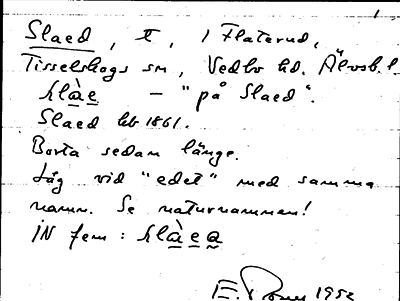 Slaed, tt, i Flaterud,
Tisselskogs sn, Vedbo hd. Älvsb. l.
slàe – "på Slaed".
Slaed hb 1861.
Borta sedan länge.
Låg vid "edet" med samma
namn. Se naturnamnen!
IN fem: slàea
E. 1952